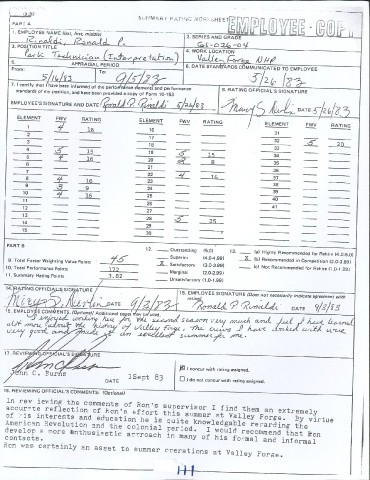 SUMMARY RATING WORKSHEET
EMPLOYEE COPY
PART A
1. EMPLOYEE NAME (last, first, middle)
Rinaldi, Ronald P.
3. SERIES AND GRADE
GS-026-04
2. POSITION TITLE
Park Technician (Interpretation)
4. WORK LOCATION
Valley Forge NHP
5. APPRAISAL PERIOD
From: 5/16/83 To: 9/5/83
6. DATE STANDARDS COMMUNICATED TO EMPLOYEE
5/26/83
7. I certify that I have been informed of the performance elements and performance
standards of the position, and have been provided a copy of Form 10-153
8. RATING OFFICIAL'S SIGNATURE
EMPLOYEE'S SIGNATURE AND DATE Ronald P. Rinaldi 5/26/83
DATE 5/26/83
ELEMENT FWV RATING ELEMENT FWV RATING ELEMENT FWV RATING
1 4 16 16 31
2 17 32 5 20
3 18 33
4 5 15 19 5 15 34
5 4 16 20 35
6 21 36
7 22 4 16 37
8 4 16 23 38
9 3 9 24 39
10 4 16 25 40
11 26 41
12 27
13 28 5 25
14 29
15 30
PART B
9. Total Factor Weighting Value Points 45
10. Total Performance Points 172
11. Summary Rating Points 3.82
12. Outstanding (5.0)
Superior (4.0-4.99)
X Satisfactory (3.0-3.99)
Marginal (2.0-2.99)
Unsatisfactory (1.0-1.99)
13. (a) Highly Recommended for Rehire (4.0-5.0)
X (b) Recommended in Competition (2.0-3.99)
(c) Not Recommended for Rehire (1.0-1.99)
14. RATING OFFICIAL'S SIGNATURE
DATE 9/3/83
15. EMPLOYEE SIGNATURE (Does not necessarily indicate agreement with rating)
Ronald P. Rinaldi DATE 9/3/83
16. EMPLOYEE COMMENTS (Optional) Additional pages may be used.
I enjoyed working here for the second season very much and feel I have learned
alot more about the history of Valley Forge. The crews I have worked with were
very good and made it an excellent summer for me.
17. REVIEWING OFFICIAL'S SIGNATURE
John C. Burns
DATE 1Sept 83
I concur with rating assigned.
I do not concur with rating assigned.
18. REVIEWING OFFICIAL'S COMMENTS (Optional)
In reviewing the comments of Ron's supervisor I find them an extremely
accurate reflection of Ron's effort this summer at Valley Forge. By virtue
of his interests and education he is quite knowledgable regarding the
American Revolution and the colonial period. I would recommend that Ron
develop a more enthusiastic approach in many of his formal and informal
contacts.
Ron was certainly an asset to summer operations at Valley Forge.